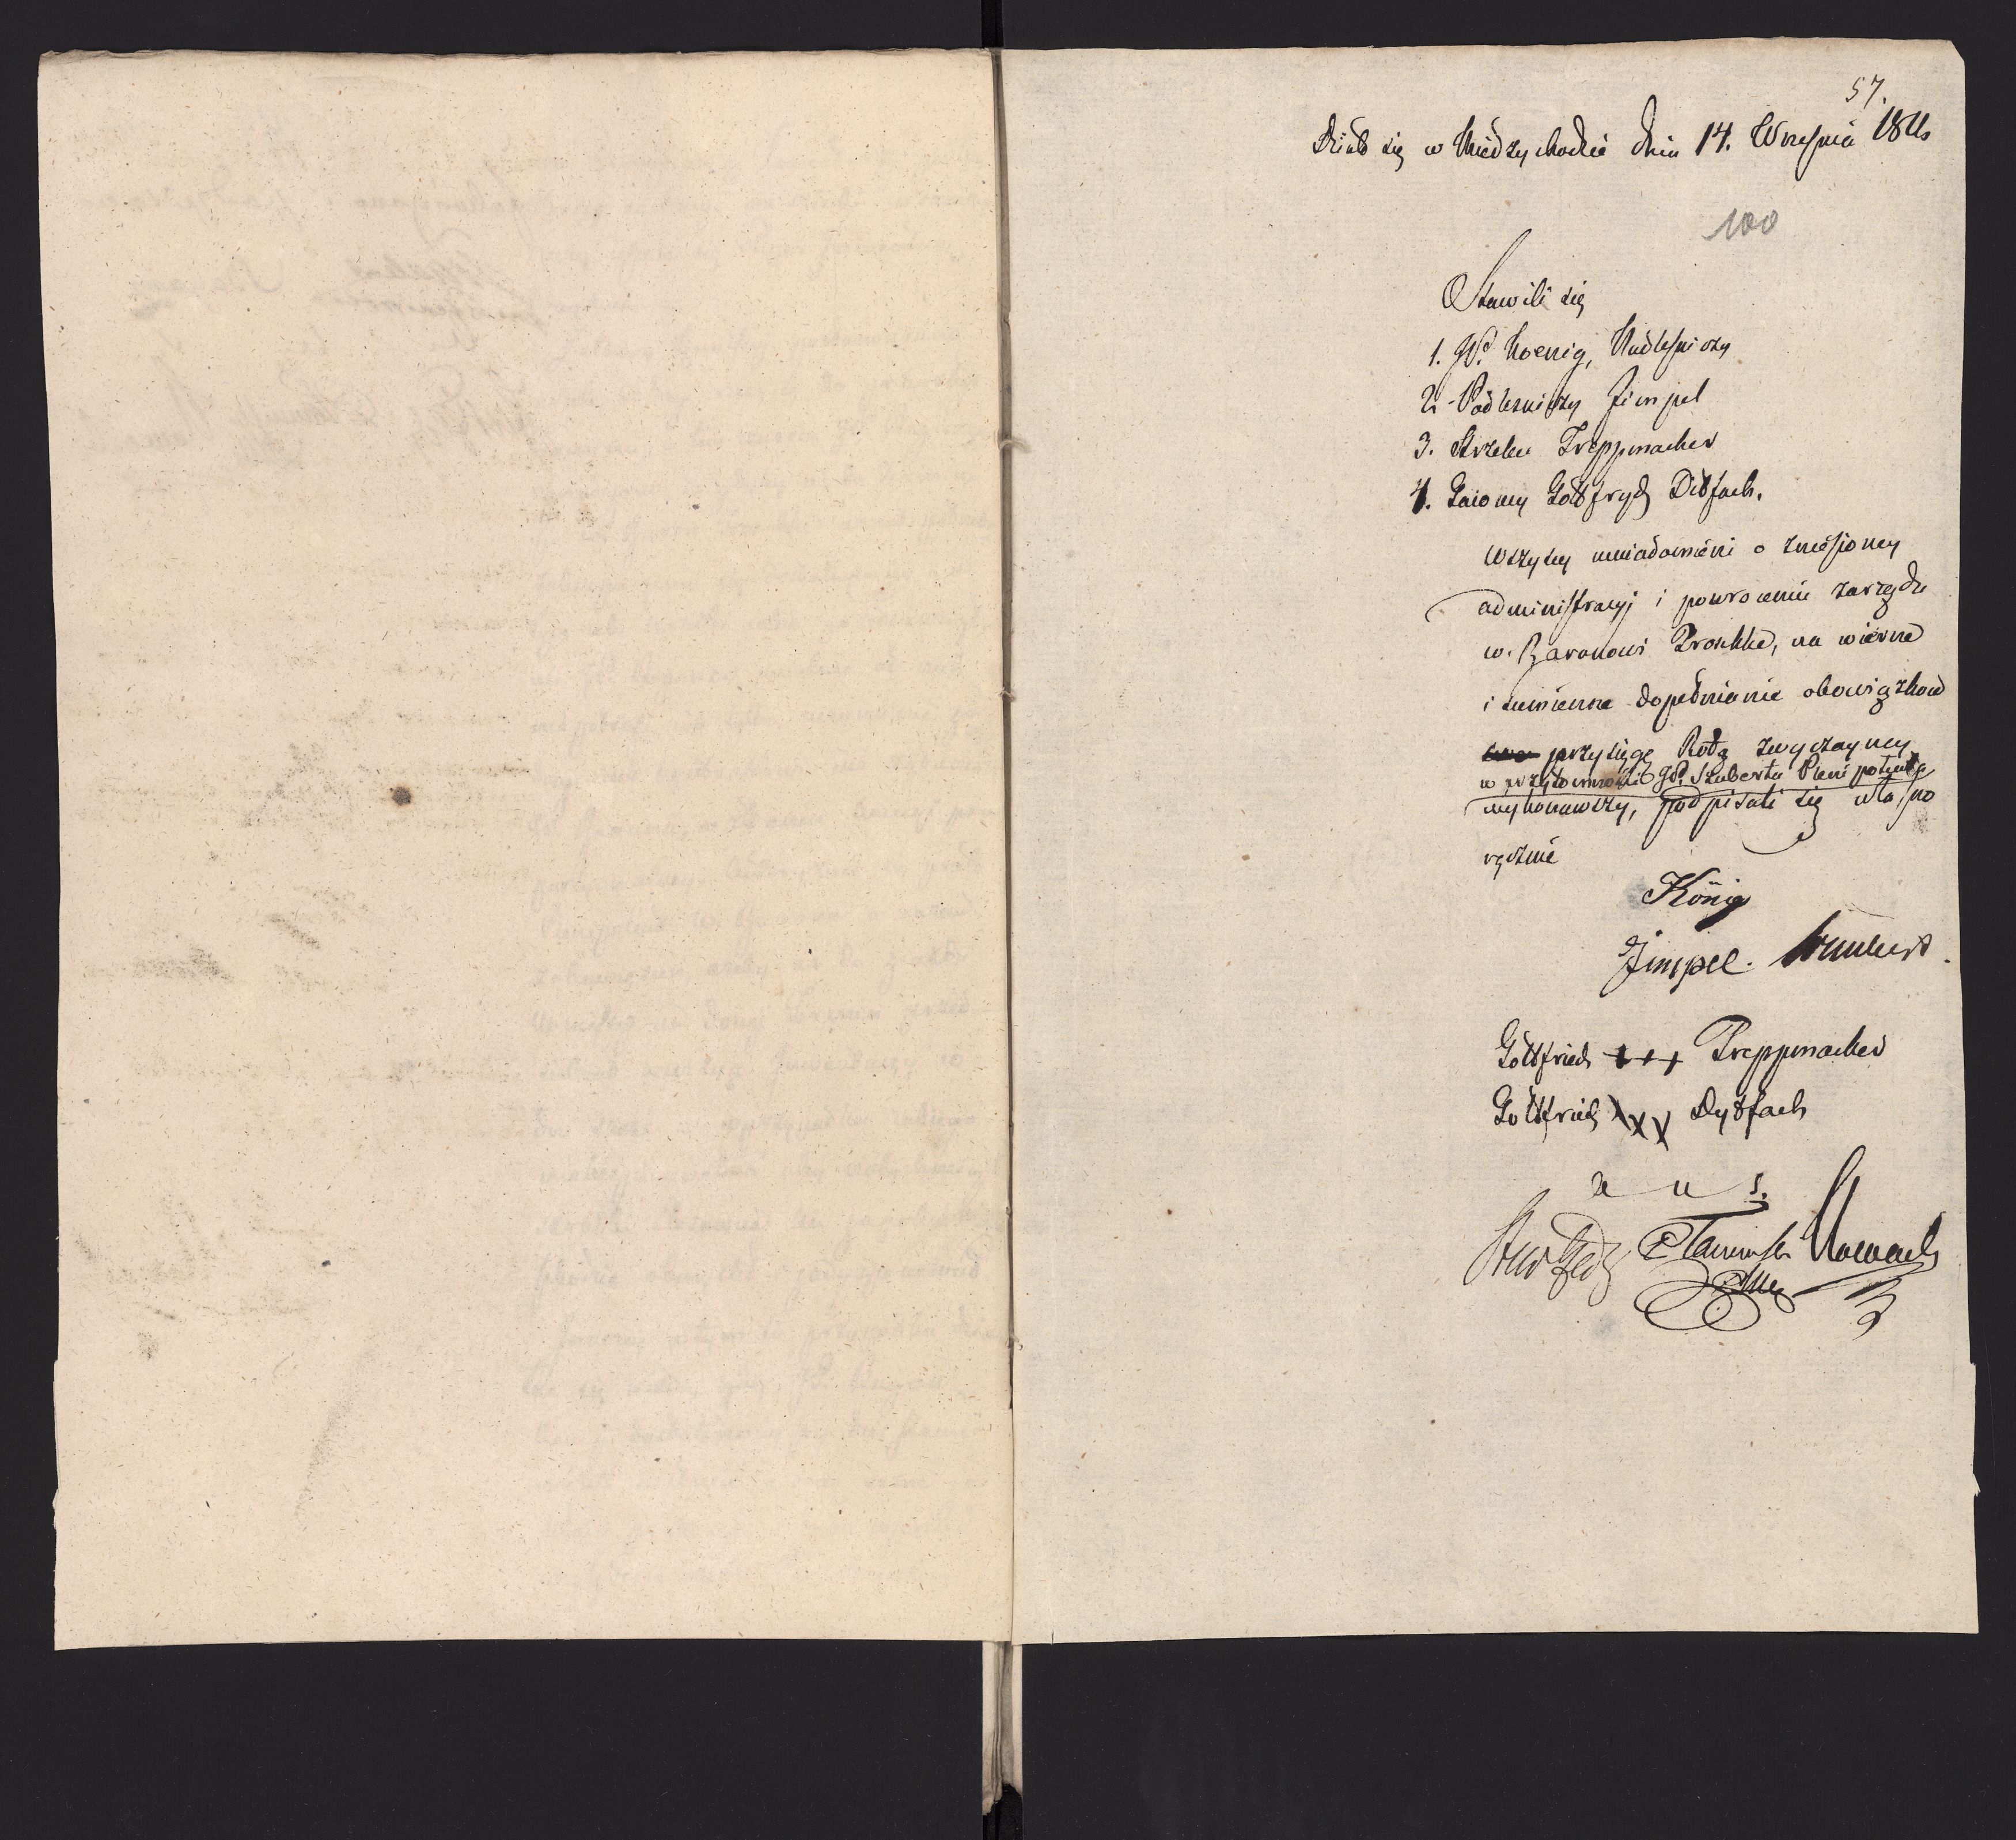 57.
Działo się w Międzychodzie dnia 14. Września 1811
100
Stawili się
1. JP. Koenig, Nadleśniczy
2. Podleśniczy Jimpel
3. Strzelec Treppmacher
4. Gaiowy Gottfryd Ditfach.
Wszyscy uwiadomieni o zniesioney
administracyi i powroceniu zarządu
w. Baronowi Troschke, na wierne
i sumienne dopełnianie obowiązkow
przysięgę Rotą zwyczayney
w przytomności JP. Szuberta Plenipotenta
wykonawszy, podpisali się własno
ręcznie
König
Jimpel.
Gottfried +++ Treppmacher
Gottfried xxx Dytfach
a u s.
Nowacki